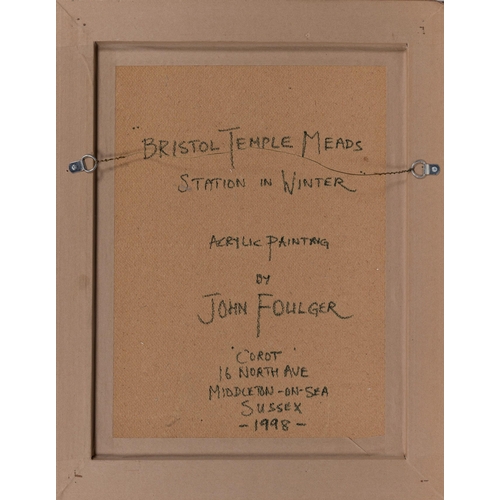 "BRISTOL TEMPLE MEADS
STATION IN WINTER
ACRYLIC PAINTING
BY
JOHN FOULGER
'COROT'
16 NORTH AVE
MIDDLETON-ON-SEA
SUSSEX
-1998-